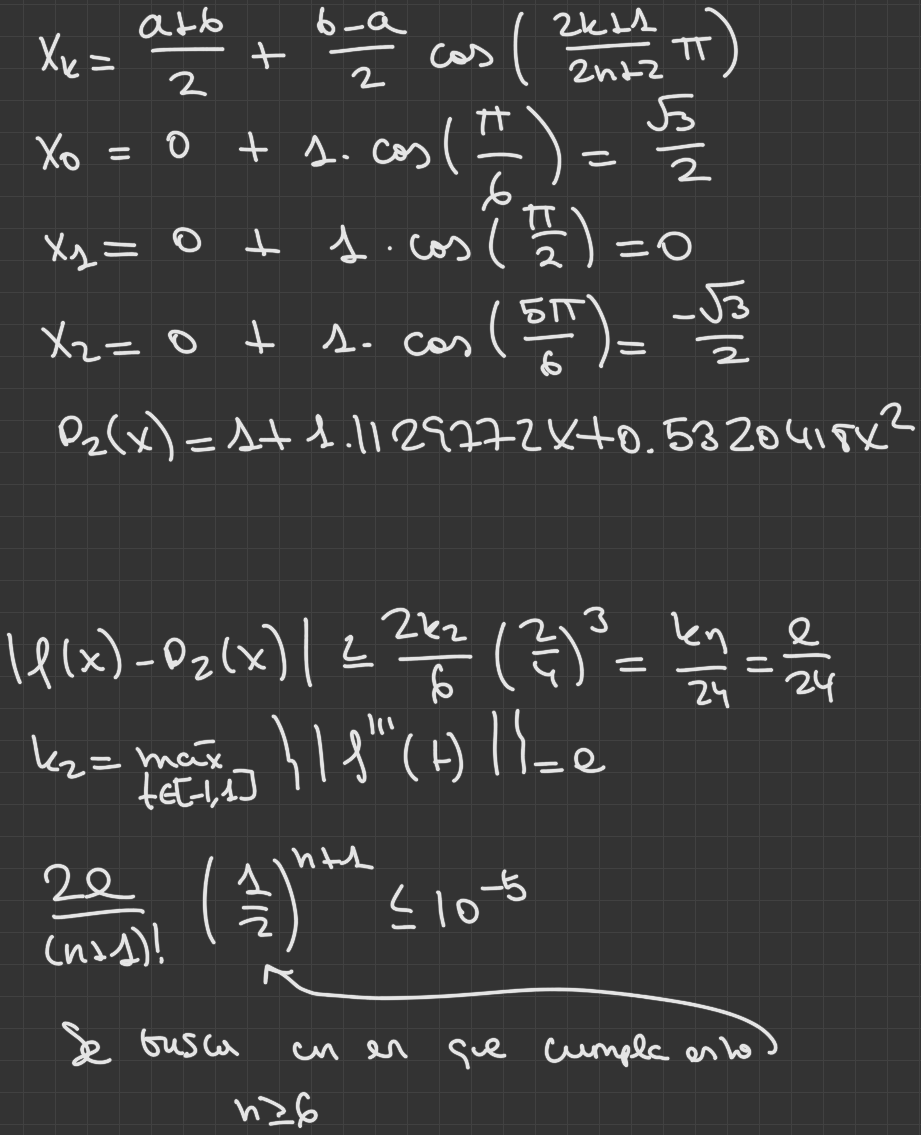 X_k = \frac{a+b}{2} + \frac{b-a}{2} cos ( \frac{2k+1}{2n+2} π )
X_0 = 0 + 1. cos ( \frac{π}{6} ) = \frac{√3}{2}
X_1 = 0 + 1 · cos ( \frac{π}{2} ) = 0
X_2 = 0 + 1. cos ( \frac{5π}{6} ) = \frac{-√3}{2}
P_2(x) = 1 + 1.1129772x + 0.5320418x^2
|f(x) - P_2(x)| ≤ \frac{2k_2}{6} ( \frac{2}{4} )^3 = \frac{kn}{24} = \frac{e}{24}
k_2 = máx_{t∈[-1,1]} { || f'''(t) || } = e
\frac{2e}{(n+1)!} ( \frac{1}{2} )^{n+1} ≤ 10^{-5}
Se busca un en que cumpla esto
n ≥ 6